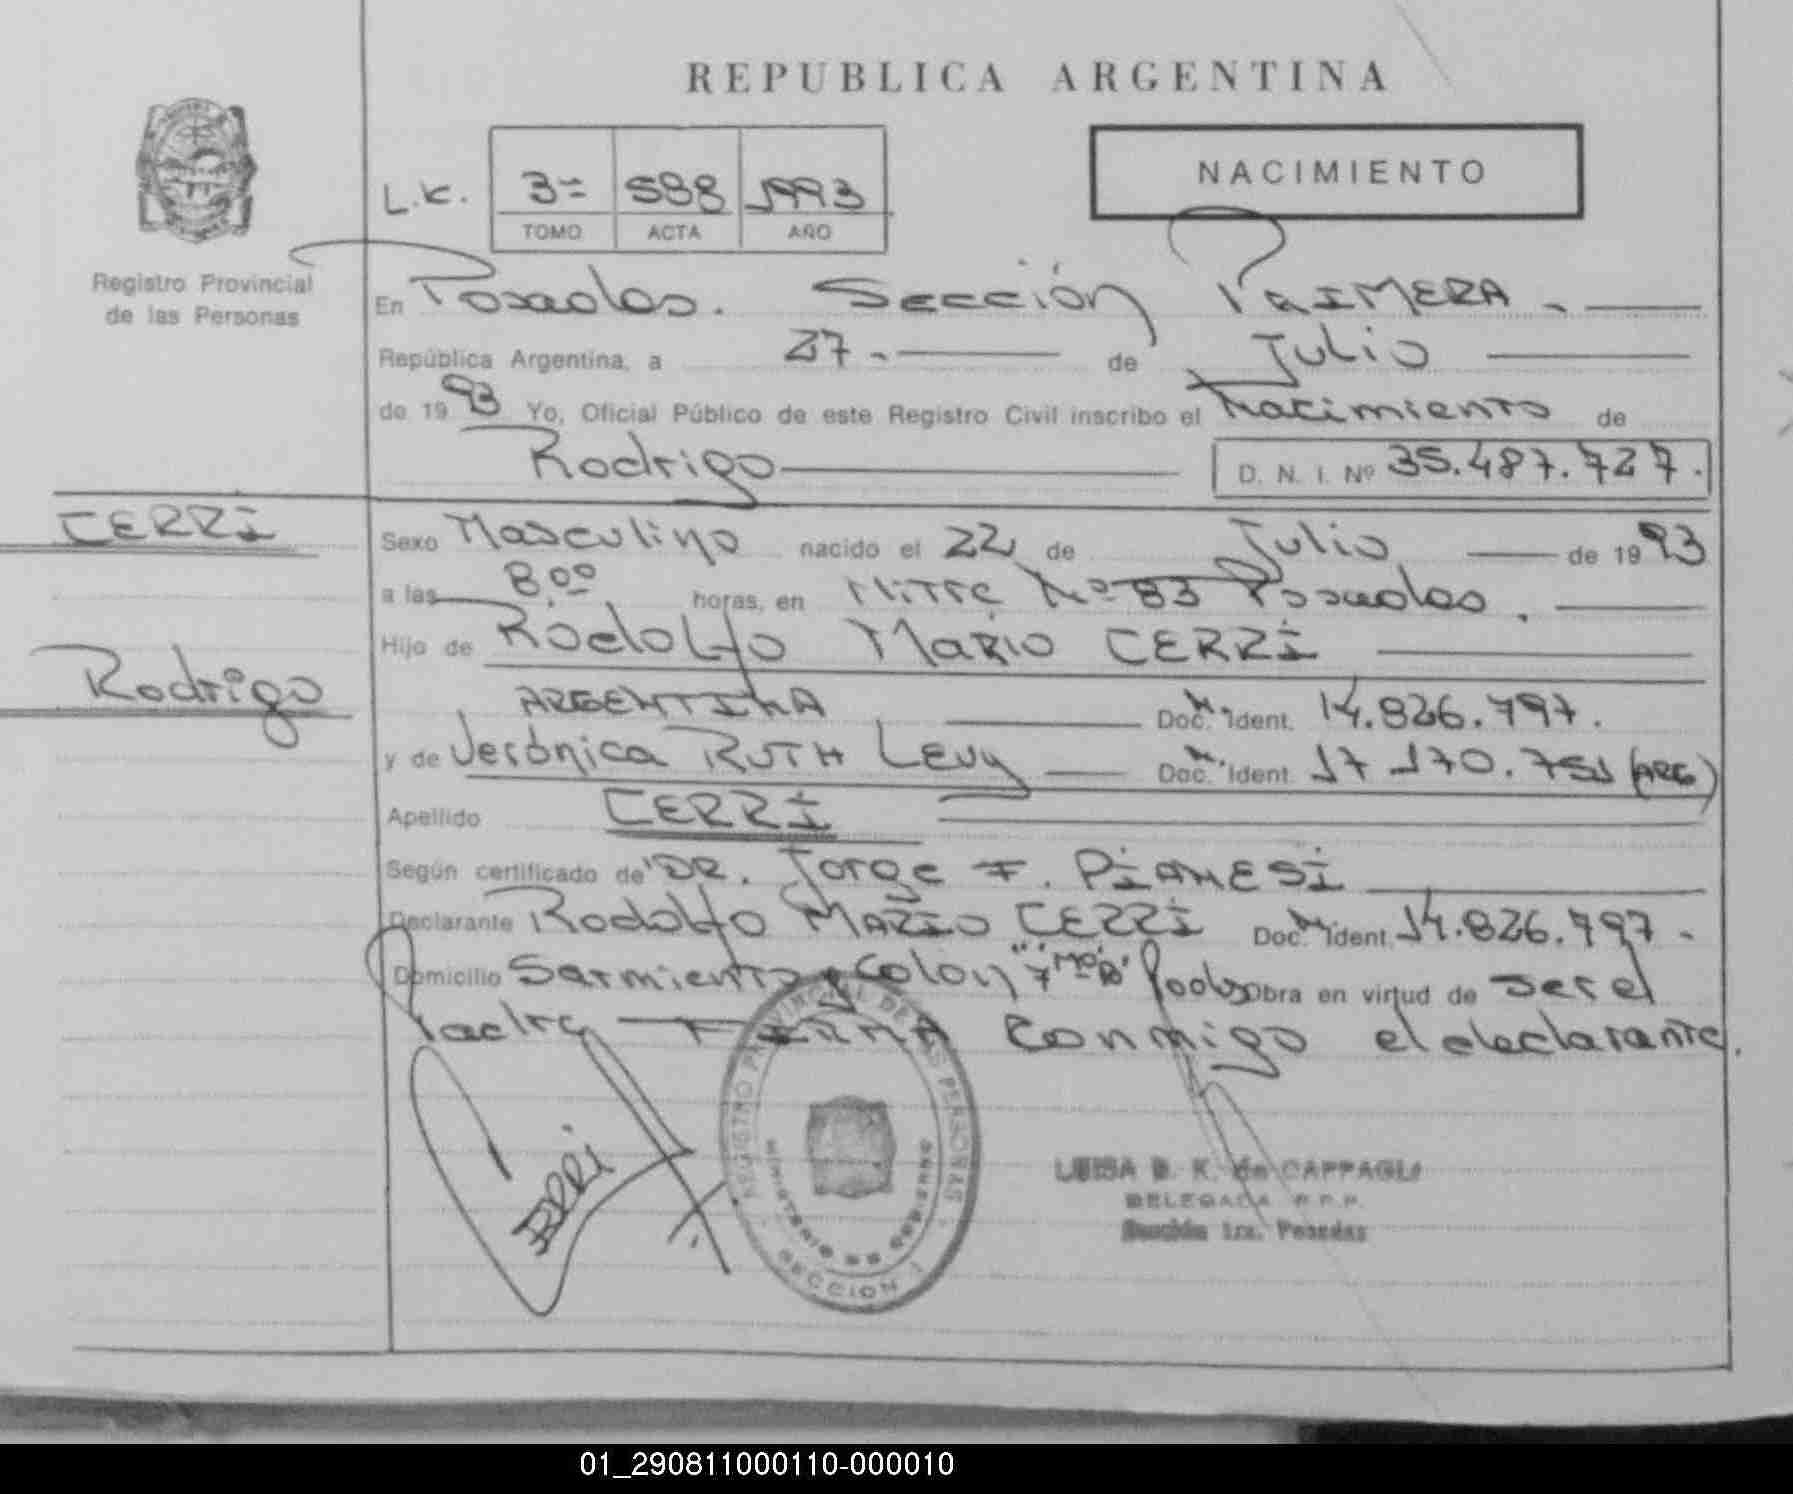 REPUBLICA ARGENTINA
NACIMIENTO
L.K. 3ª 588 1993
TOMO ACTA AÑO
Registro Provincial
de las Personas
En Posadas. Sección PRIMERA -
República Argentina, a 27 - de Julio
de 1993 Yo, Oficial Público de este Registro Civil inscribo el Nacimiento de
Rodrigo D. N. I. Nº 35.487.727.
CERRI
Sexo Masculino nacido el 22 de Julio de 1993
a las 8.00 horas, en Mitre Nº 83 Posadas.
Hijo de Rodolfo Mario CERRI
Rodrigo
ARGENTINA Doc. N. Ident. 14.826.797.
y de Verónica RUTH Levy Doc. N. Ident. 17 170.751 (ARG)
Apellido CERRI
Según certificado de DR. Jorge F. PIANESI
Declarante Rodolfo MARIO CERRI Doc. N. Ident. 14.826.797 -
Domicilio Sarmiento y Colon 7 Mº "B" Obra en virtud de ser el
Padre FIRMA Conmigo el declarante.
REGISTRO PROVINCIAL DE LAS PERSONAS
MINISTERIO DE GOBIERNO
SECCION 1
LUISA B. K. de CAPPAGLI
DELEGADA R.P.P.
Sección 1ra. Posadas
01_290811000110-000010